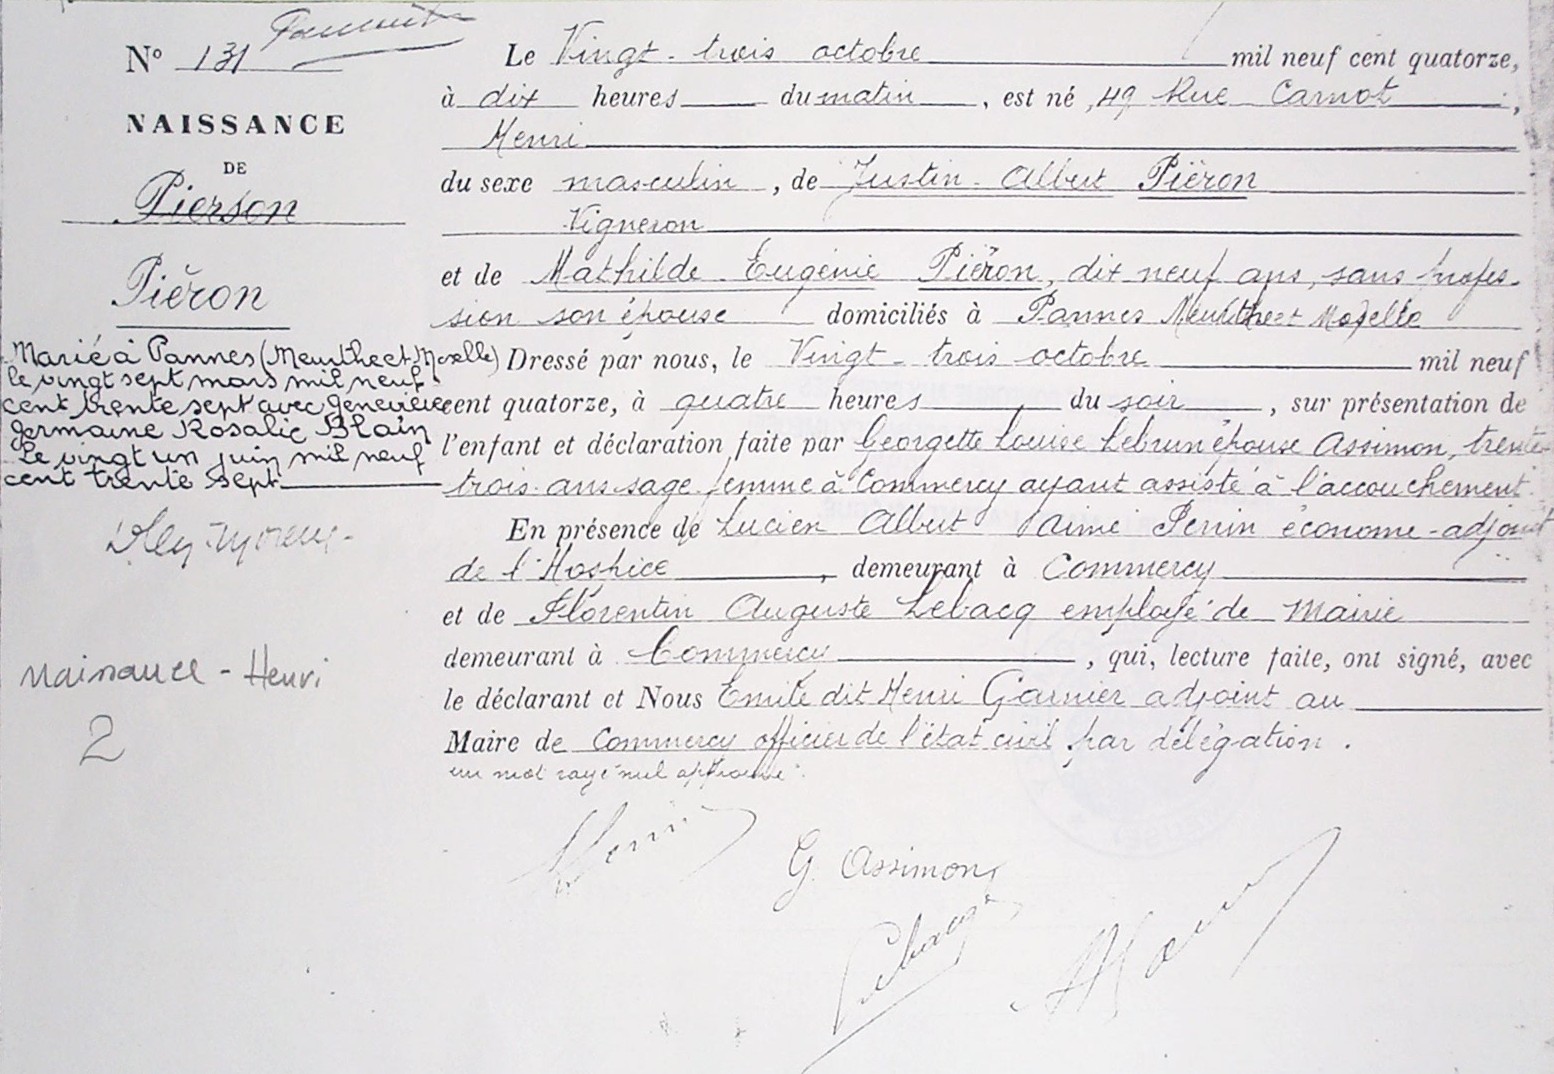 Nº 131
NAISSANCE
DE
Pierson
Piéron
Marié à Pannes (Meurthe et Moselle)
le vingt sept mars mil neuf
cent trente sept avec Geneviève
Germaine Rosalie Blain
Le vingt un juin mil neuf
cent trente sept
Naissance - Henri
2
Le Vingt-trois octobre mil neuf cent quatorze,
à dix heures du matin, est né, 49 Rue Carnot,
Henri
du sexe masculin, de Justin-Albert Piéron
Vigneron
et de Mathilde Eugénie Piéron, dix neuf ans, sans profes-
sion son épouse domiciliés à Pannes Meurthe et Moselle
Dressé par nous, le Vingt-trois octobre mil neuf
cent quatorze, à quatre heures du soir, sur présentation de
l'enfant et déclaration faite par Georgette Louise Lebrun épouse Assimon, trente-
trois ans sage femme à Commercy ayant assisté à l'accouchement.
En présence de Lucien Albert Aimé Perrin économe-adjoint
de l'Hospice, demeurant à Commercy
et de Florentin Auguste Lebacq employé de Mairie
demeurant à Commercy, qui, lecture faite, ont signé, avec
le déclarant et Nous Emile dit Henri Garnier adjoint au
Maire de Commercy officier de l'état civil par délégation.
un mot rayé nul approuvé.
G. Assimon
Lebacq